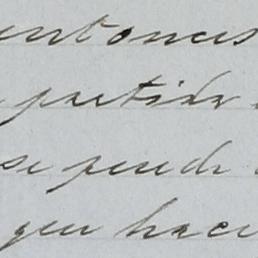 entonces
partida
se puede
que hace